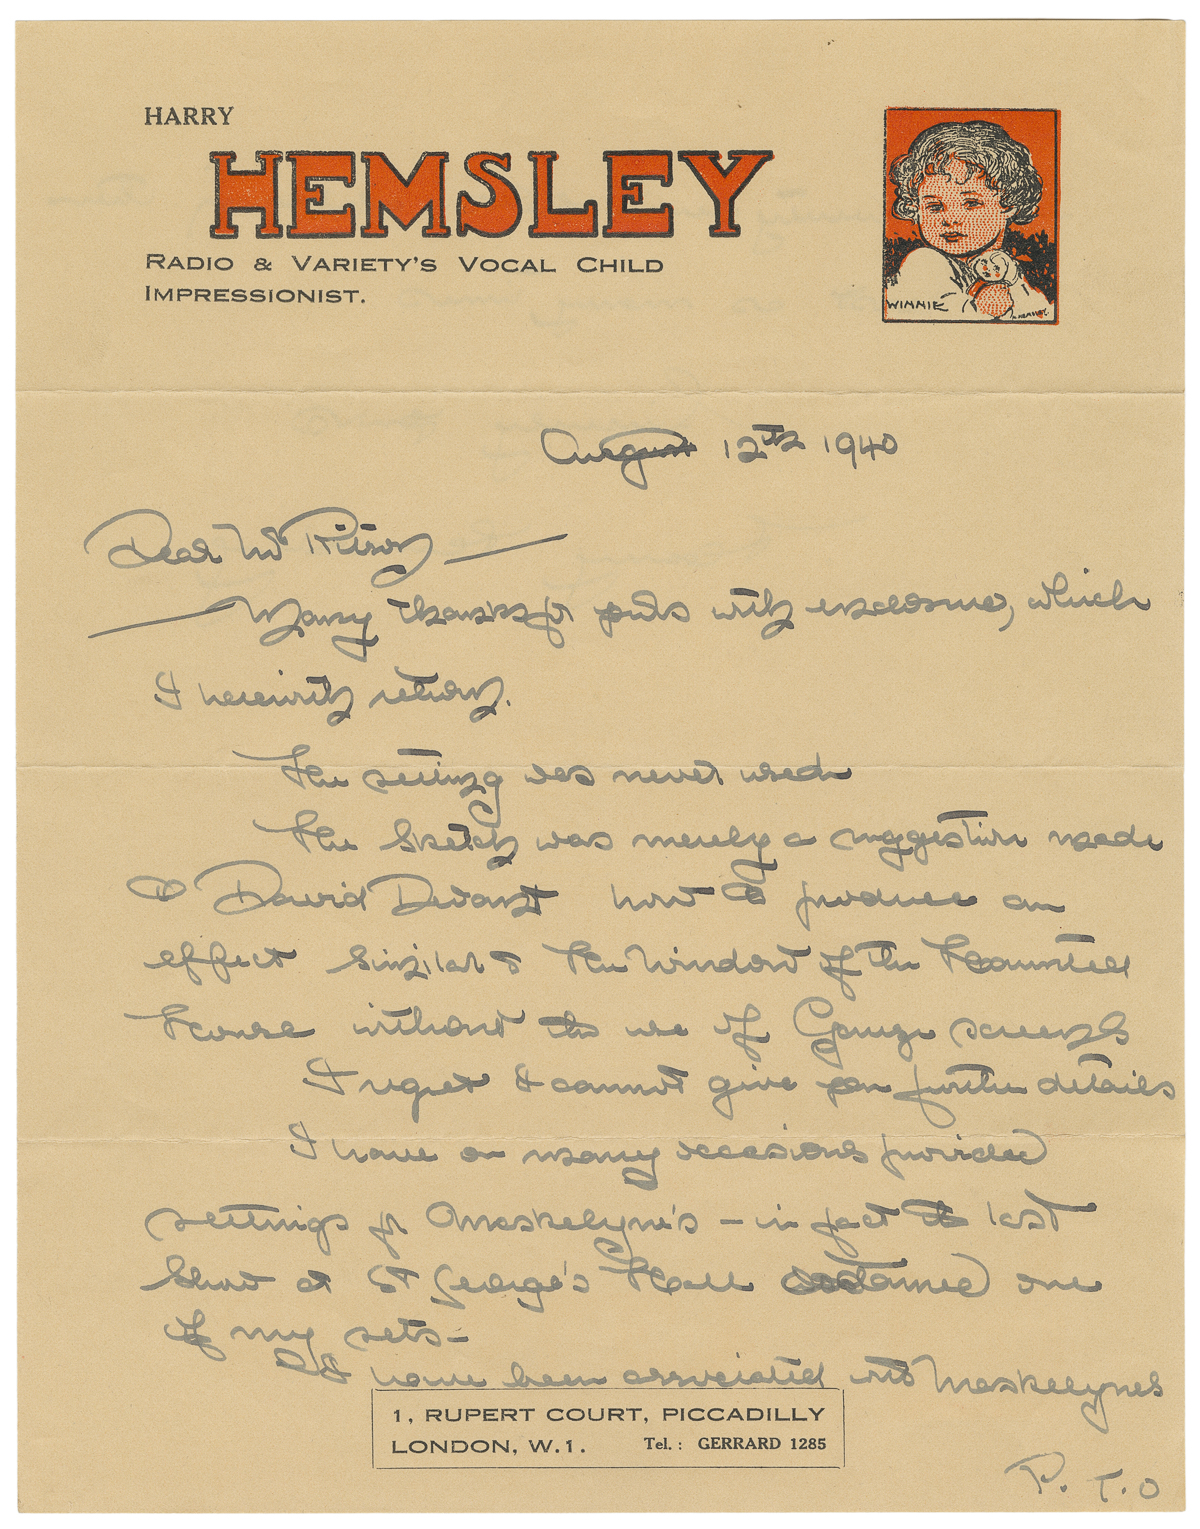 HARRY
HEMSLEY
RADIO & VARIETY'S VOCAL CHILD
IMPRESSIONIST.
WINNIE
August 12th 1940
Dear Mr Ritson
Many thanks for yours with enclosure, which
I herewith return.
The setting was never used
The sketch was merely a suggestion made
to David Devant how to produce an
effect similar to the window of the Haunted
House without the use of Gauze screens
I regret I cannot give you further details
I have on many occasions provided
settings for Maskelyne's – in fact the last
show at St George's Hall contained one
of my sets –
I have been associated with Maskelynes
1, RUPERT COURT, PICCADILLY
LONDON, W.1. Tel.: GERRARD 1285
P. T. O